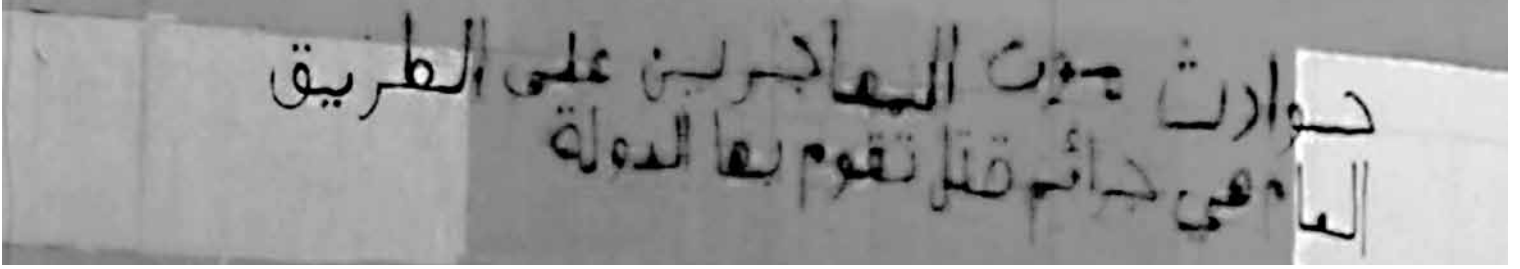 حوادث موت المهاجرين على الطريق
العام هي جرائم قتل تقوم بها الدولة